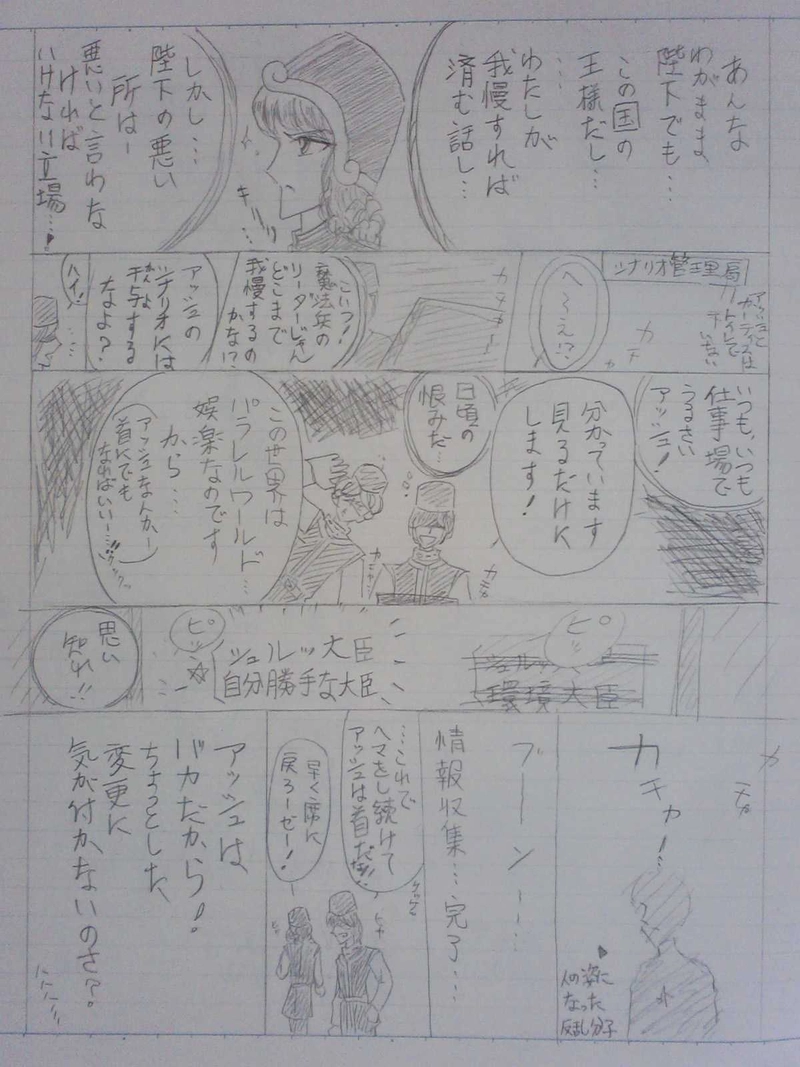 あんな
わがまま、
陛下でも…
この国の
王様だし…
…
わたしが
我慢すれば
済む話し…
キリッ
しかし…
陛下の悪い
所は―
悪いと言わな
ければ
いけない立場…!
シナリオ管理局
アッシュと
カーティスは
トイレで
下いない
カ
カチ
へ〜え!?
カタカタ―
こいつ!
魔法兵の
リーダーじゃん
どこまで
我慢するの
かな!?
アッシュの
シナリオKは
かんよ
干与する
なよ?
ハイ!
いつも、いつも
仕事場で
うるさい
アッシュ!
分かっています
見るだけK
します!
日頃の
恨みだ…
カタカタ
この世界は
パラレルワールド…
娯楽なのです
から…
(アッシュなんかー
首にでも
なればいい…!!クックッ)
ピッ
環境大臣
ピッ
☆
シュルツ大臣
自分勝手な大臣
思い
知れ!!
カ
チカ
カチャー!
人の姿に
なった
反乱分子
ブーン〜…
情報収集…完了…
…これで
ヘマをし続けて
アッシュは首だな!!
ケケケ
早く席に
戻ろーゼー!
アッシュは、
バカだから!
ちょっとした、
変更に
気が付かないのさ?